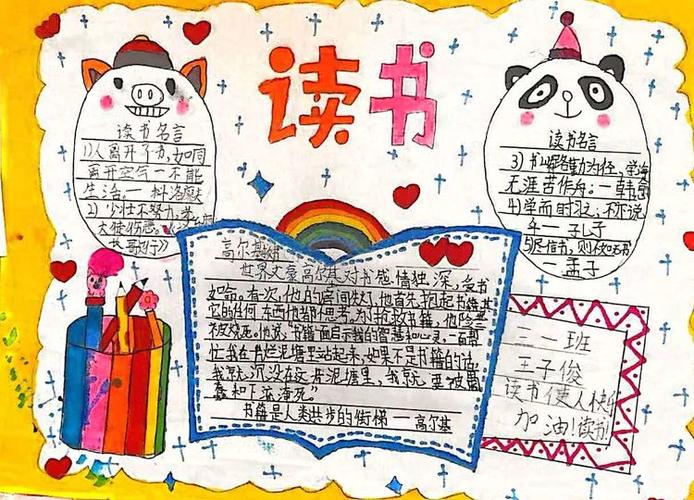 读书
读书名言
1)人离开了书,如同
离开空气一不能
生活;一科洛廖夫
2)少壮不努力,
读书名言
3)书山有路勤为径,学海
无涯苦作舟;一韩愈
4)学而时习之,不亦说
乎一孔子
5)尽信书,则不如无书
一孟子
高尔基
世界文豪高尔基对书感情独深,爱书
如命。有次,他的房间失火,他首先抱起书籍,其
它的任何东西他都不思考。为了抢救书籍,他险些
被烧死。他说:"书籍一面启示我的智慧和心灵,一面帮
忙我在一片烂泥塘里站起来,如果不是书籍的话,
我就沉没在这片泥塘里,我就要被
蠢和下流淹死。"
书籍是人类进步的阶梯一高尔基
三一班
王子俊
读书使人快乐
加油!读书!